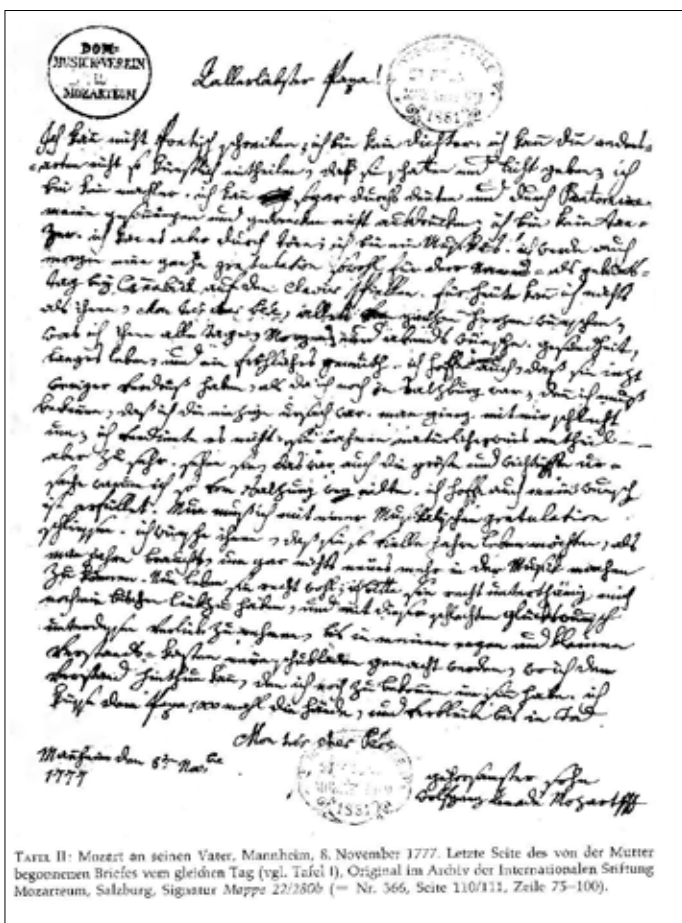 DOM-
MUSICK-VEREIN
U.
MOZARTEUM
1881
Allerliebster Papa!
Ich kan nicht Poetisch schreiben; ich bin kein dichter. ich kan die redens-
arten nicht so künstlich eintheilen, daß sie schatten und licht geben; ich
bin kein mahler. ich kan sogar durchs deüten und durch Pantomime
meine gesinnungen und gedancken nicht ausdrücken; ich bin kein tan-
zer. ich kan es aber durch töne; ich bin ein Musikus. ich werde auch
morgen eine ganze gratulation sowohl für dero Namens- als geburts-
tag bey Cannabich auf dem Clavier spiellen. für heüte kan ich nichts
als ihnen, Mon très cher Père, alles vom ganzen herzen wünschen,
was ich ihnen alle tage, Morgens, und abends wünsche. gesundheit,
langes leben, und ein fröhliches gemüth. ich hoffe auch, daß sie iezt
weniger verdruß haben, als da ich noch in salzburg war; den ich muß
bekennen, daß ich die einzige ursach war. man gieng mit mir schlecht
um; ich verdiente es nicht. sie nahmen natürlicherweis antheil --
aber zu sehr. sehen sie, das war auch die gröste und wichtigste ur-
sache warum ich so von salzburg weg eilte. ich hoffe auch mein wunsch
ist erfüllet. Nun muß ich mit einer Musikalischen gratulation
schliessen. ich wünsche ihnen, daß sie so vielle jahre leben möchten, als
man jahre braucht, um gar nichts neues mehr in der Musick machen
zu können. Nun leben sie recht wohl; ich bitte sie recht unterthänig mich
noch ein bischen lieb zu haben, und mit diesen schlechten glückwunsch
unterdessen verlieb zu nehmen, bis in meinem engen und kleinen
verstands-kasten neüe schubladen gemacht werden, wo ich den
verstand hinthun kan, den ich noch zu bekommen im sinn habe. ich
küsse dem Papa 1000 mahl die hände, und verbleibe bis in Tod
Mon très cher Père
Mannheim den 8:ten Nov:bre
1777
gehorsamster sohn
Wolfgang Amadé Mozart
1881
TAFEL II: Mozart an seinen Vater, Mannheim, 8. November 1777. Letzte Seite des von der Mutter
begonnenen Briefes vom gleichen Tag (vgl. Tafel I). Original im Archiv der Internationalen Stiftung
Mozarteum, Salzburg, Signatur Mappe 22/280b (= Nr. 366, Seite 110/111, Zeile 75–100).